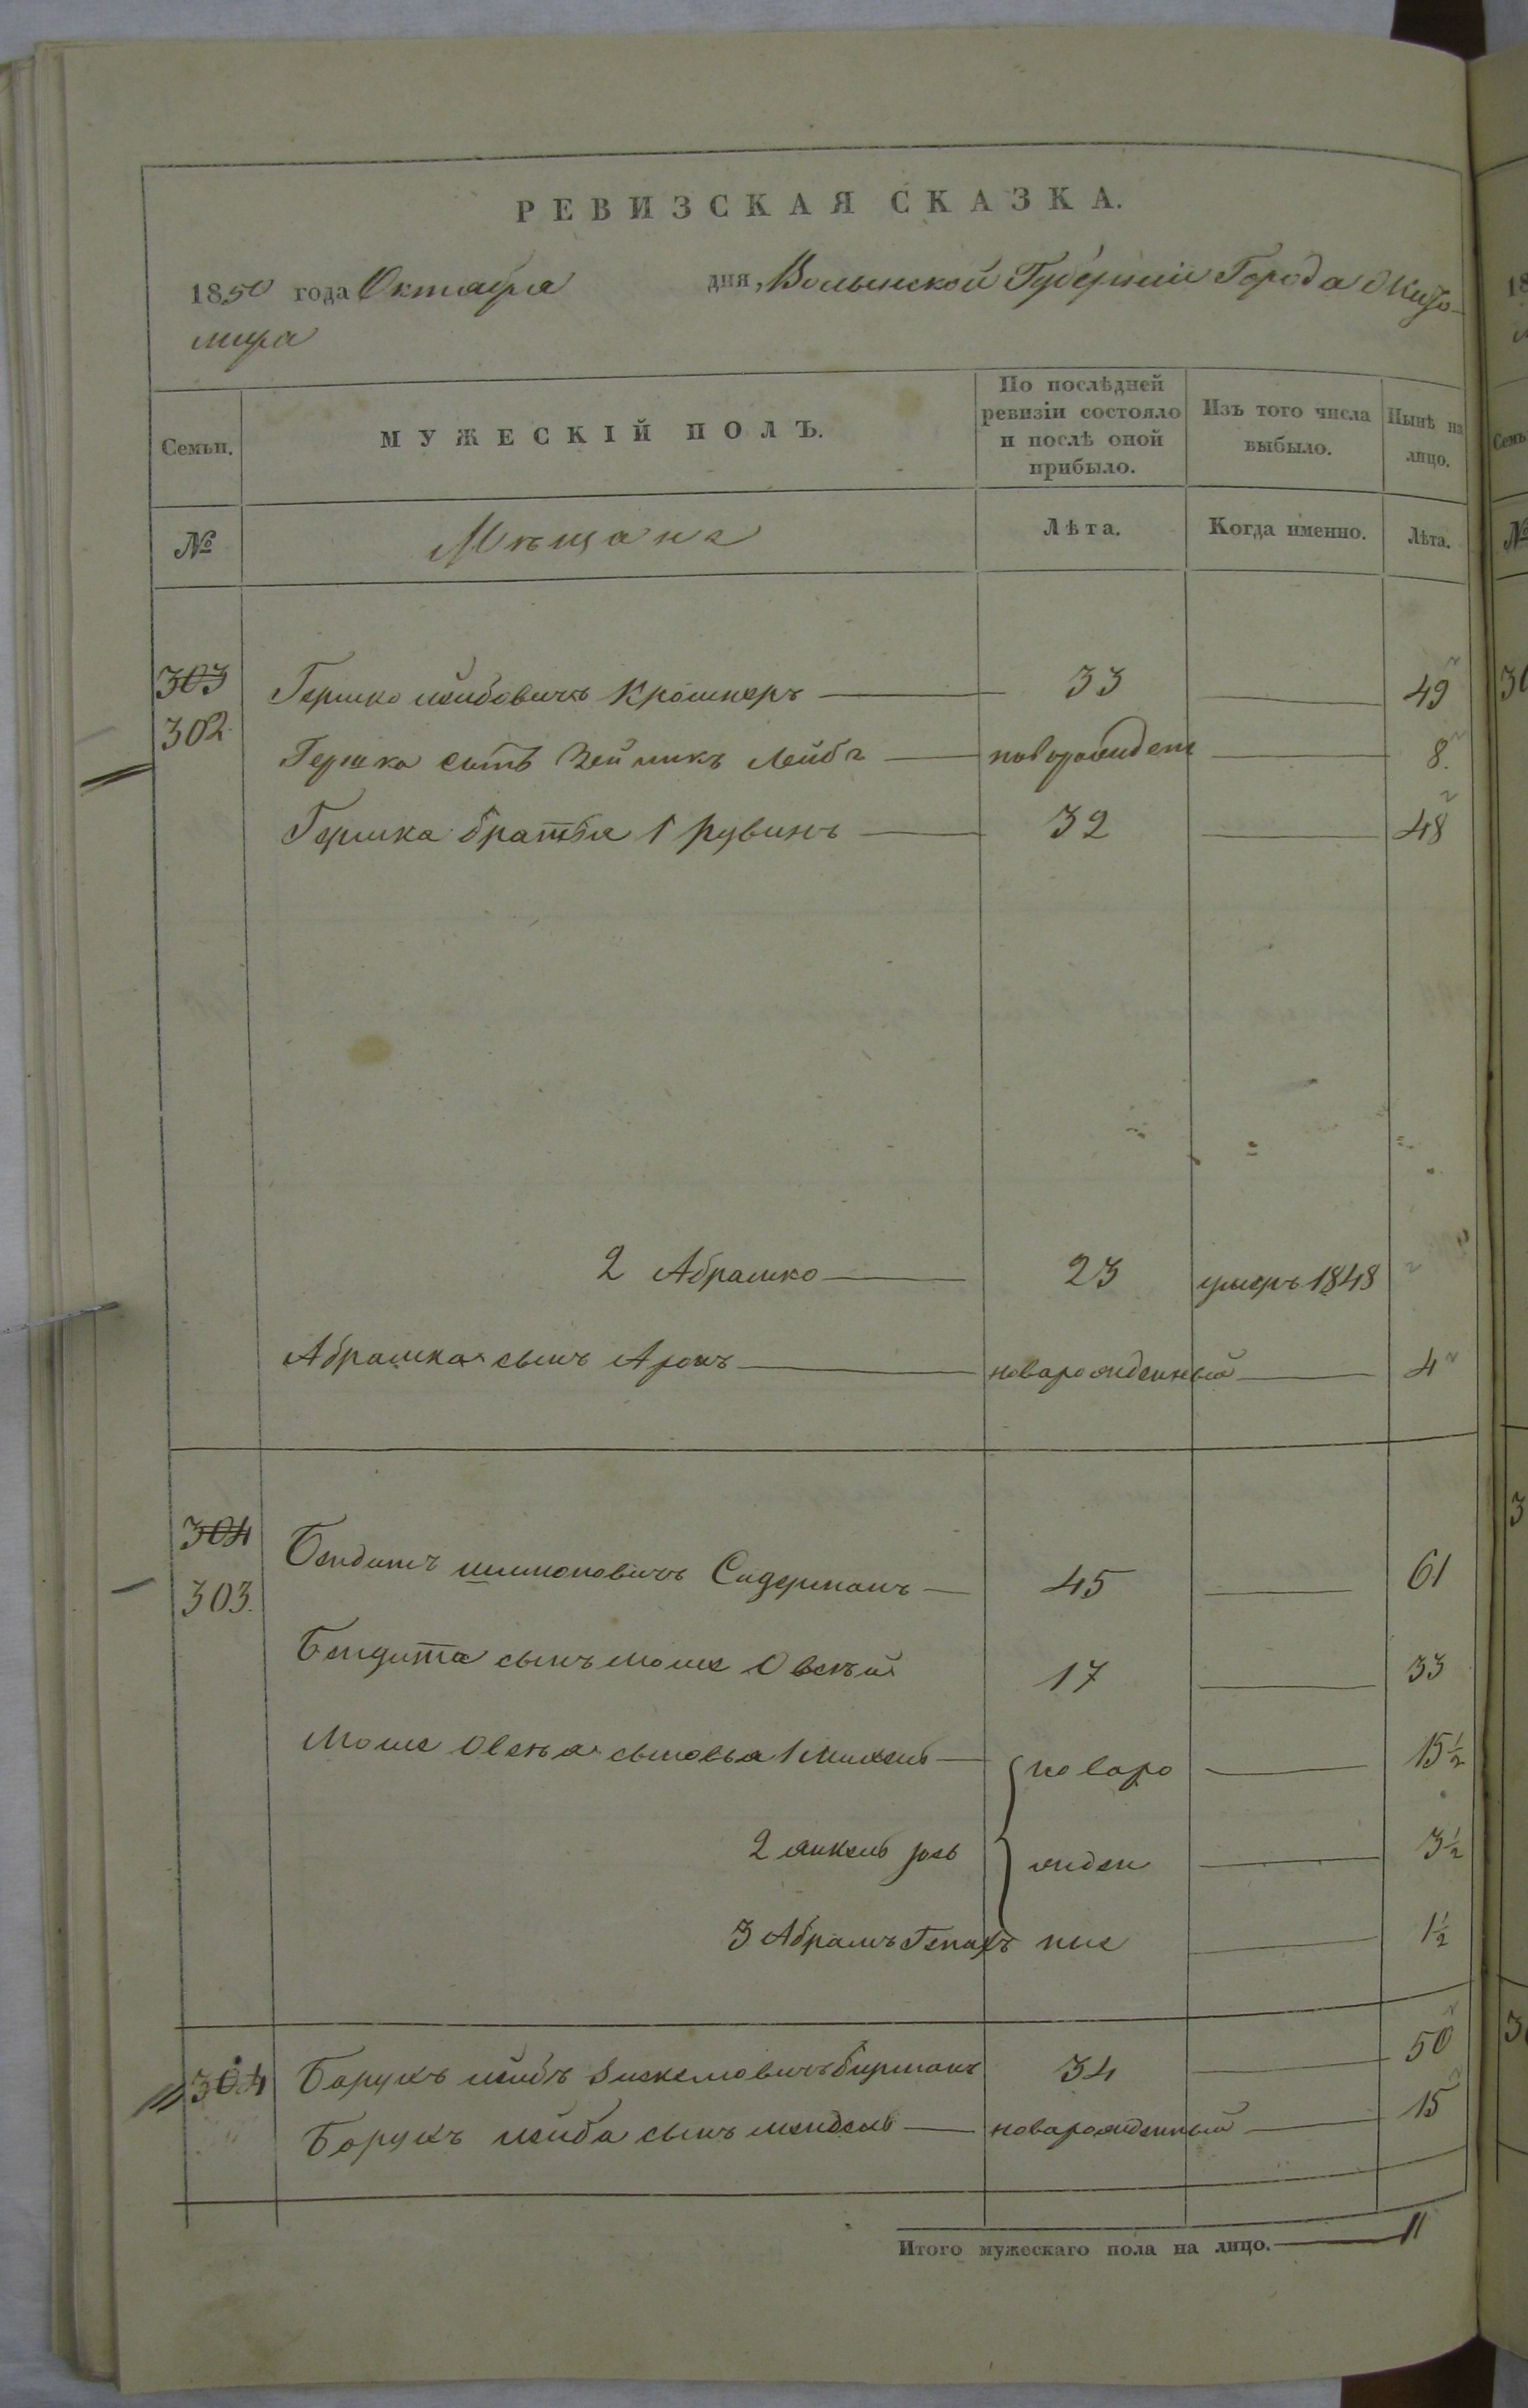 РЕВИЗСКАЯ СКАЗКА.
1850 года Октября дня, Волынской Губерніи Города Жито-
мира
Семьи. МУЖЕСКІЙ ПОЛЪ. По послѣдней ревизіи состояло и послѣ оной прибыло. Изъ того числа выбыло. Нынѣ на лицо.
№ Мѣщане Лѣта. Когда именно. Лѣта.
303 Гершко Лейбовичъ Крошнеръ 33 49
302 Гершка сынъ Зейликъ Лейба новорожден 8.
Гершка братья 1 Рувинъ 32 48
2 Абрамко 23 умеръ 1848
Абрамка сынъ Аронъ новорожденный 4
304 Бендитъ Шимоновичъ 45 61
303.
Бендита сынъ Моше Овсѣй 17 33
Моше Овсѣя сыновья 1 Михель новоро 15½
2 Янкель жден 3½
3 Абрамъ Генахъ ные 1½
304 Борухъ Лейбъ 34 50
Борухъ Лейба сынъ Мендель новорожденный 15
Итого мужескаго пола на лицо. 11